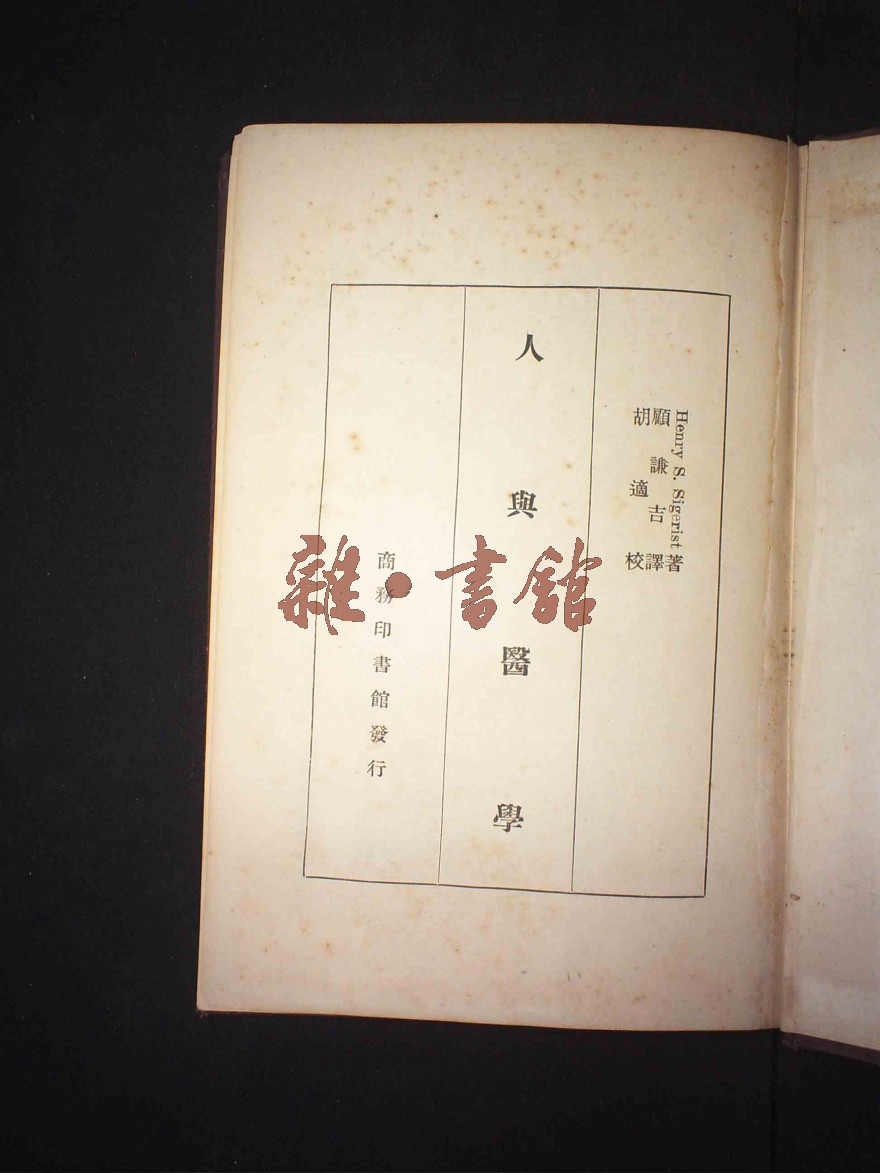 Henry S. Sigerist 著
顧謙吉 譯
胡適 校
人與醫學
商務印書館發行
雜·書館